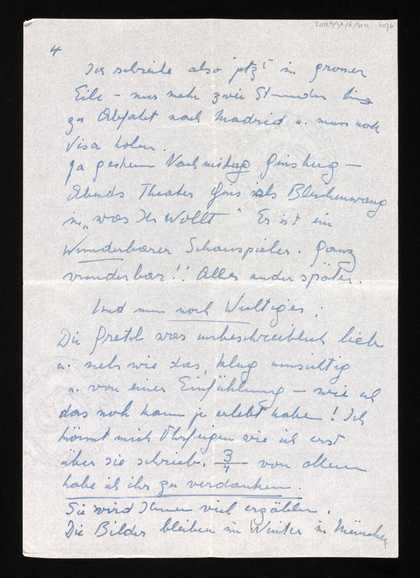 4
Ich schreibe also jetzt in grosser
Eile – nur mehr zwei Stunden bis
zu Abfahrt nach Madrid u. muss noch
Visa holen.
Ja gestern Nachmittag –
Abends Theater als Bleichenwang
in „Was Ihr Wollt" Er ist ein
wunderbarer Schauspieler. Ganz
wunderbar!! Alles andere später.
Und nun noch Wichtiges:
Die Gretel war unbeschreiblich lieb
u. mehr wie das, klug umsichtig
u. von einer Einfühlung – wie ich
das noch kaum je erlebt habe! Ich
könnt mich Ohrfeigen wie ich erst
über sie schrieb. 3/4 von allem
habe ich ihr zu verdanken.
Sie wird Ihnen viel erzählen.
Die Bilder bleiben im Winter in München